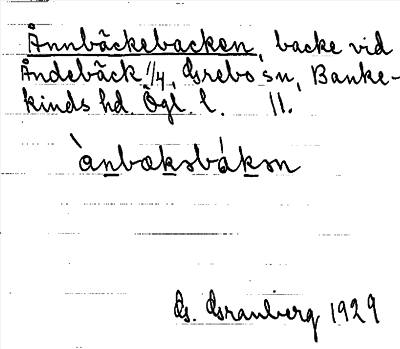 Ånnbäckebacken, backe vid
Åndebäck 1/4, Grebo sn, Banke-
kinds hd. Ögl. l. 11.
`anbæksbáksn
G. Granberg 1929